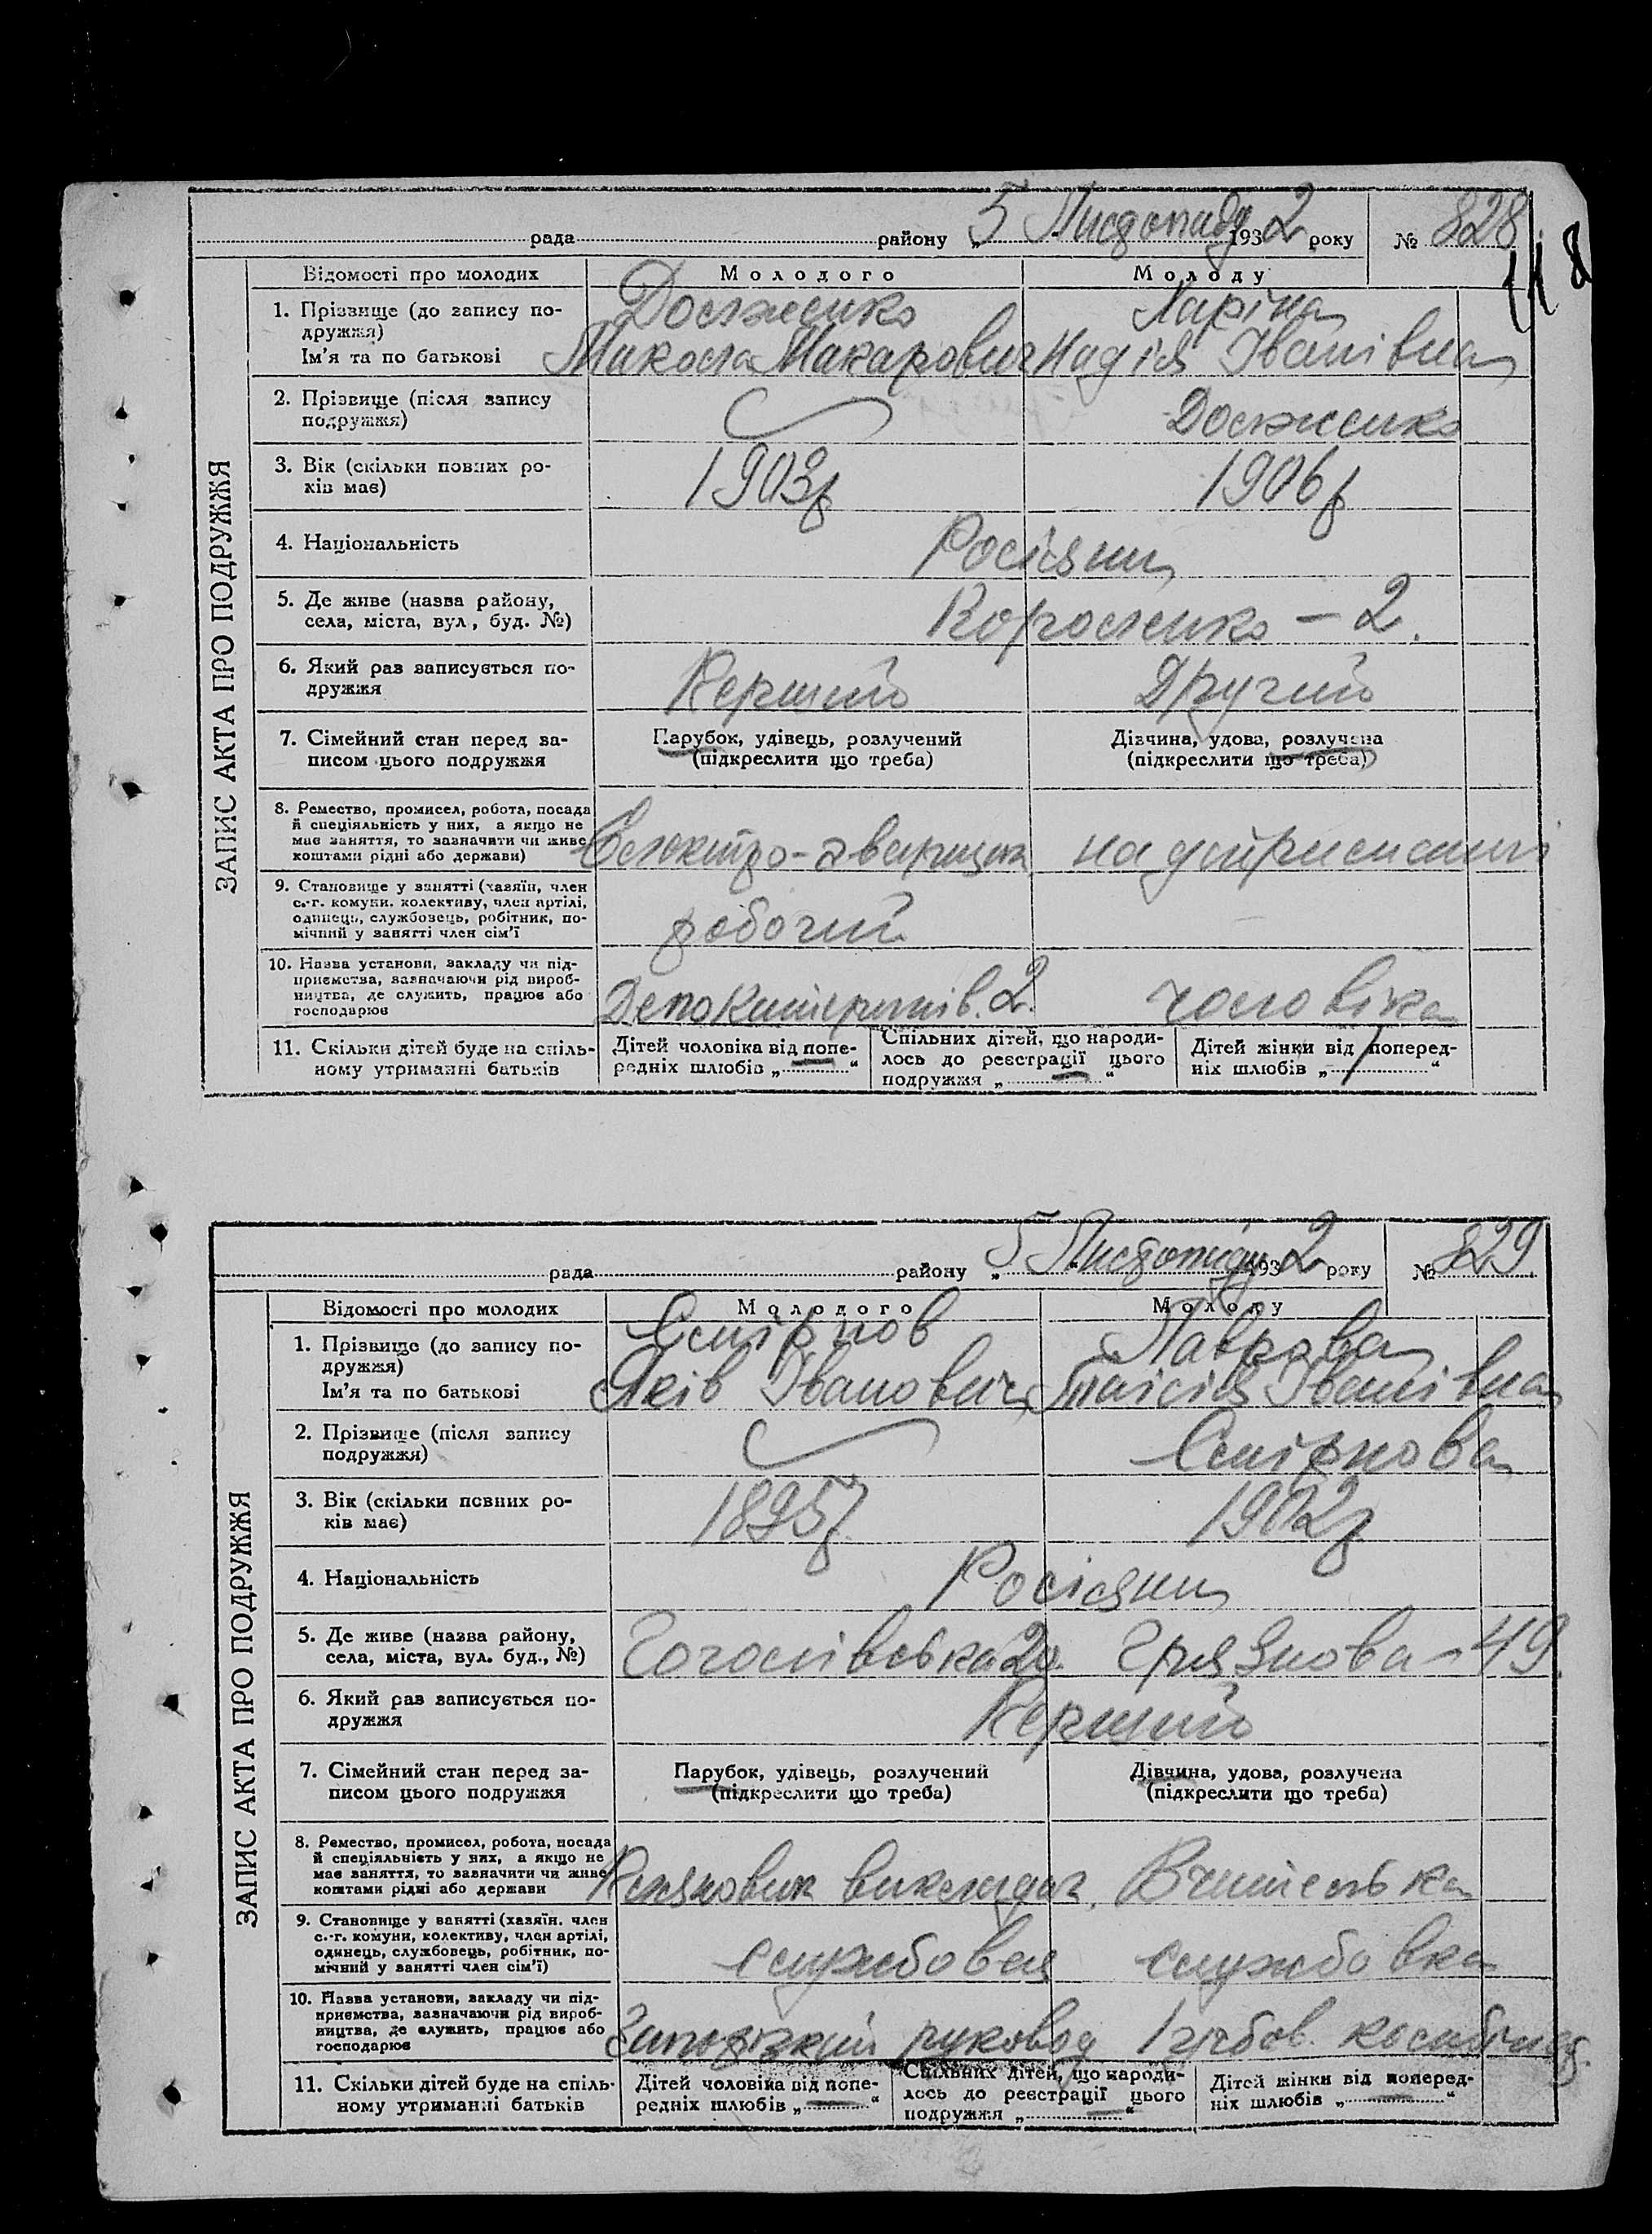 рада району „5 Листопаду 1932 року № 828
118
ЗАПИС АКТА ПРО ПОДРУЖЖЯ
Відомості про молодих Молодого Молоду
1. Прізвище (до запису по-
дружжя) Долженко Ларіна
Ім'я та по батькові Микола Макарович Надія Іванівна
2. Прізвище (після запису
подружжя) Долженко
3. Вік (скільки повних ро-
ків має) 1903р 1906р
4. Національність Росіяни
5. Де живе (назва району,
села, міста, вул., буд. №) Короленко – 2.
6. Який раз записується по-
дружжя Перший Другий
7. Сімейний стан перед за-
писом цього подружжя
Парубок, удівець, розлучений
(підкреслити що треба)
Дівчина, удова, розлучена
(підкреслити що треба)
8. Ремество, промисел, робота, посада
й спеціяльність у них, а якщо не
має заняття, то зазначити чи живе
коштами рідні або держави) Електро-зварщик на утриманні
9. Становище у занятті (хазяїн, член
с.-г. комуни, колективу, член артілі,
одинець, службовець, робітник, по-
мічний у занятті член сім'ї робочий
10. Назва установи, закладу чи під-
приємства, зазначаючи рід вироб-
ництва, де служить, працює або
господарює Депо 2. чоловіка
11. Скільки дітей буде на спіль-
ному утриманні батьків
Дітей чоловіка від попе-
редніх шлюбів „ — “
Спільних дітей, що народи-
лось до реєстрації цього
подружжя „ — “
Дітей жінки від поперед-
ніх шлюбів „ / “
рада району „5 Листопаду 1932 року № 829
ЗАПИС АКТА ПРО ПОДРУЖЖЯ
Відомості про молодих Молодого Молоду
1. Прізвище (до запису по-
дружжя) Смірнов Лаврова
Ім'я та по батькові Яків Іванович Таісія Іванівна
2. Прізвище (після запису
подружжя) Смірнова
3. Вік (скільки повних ро-
ків має) 1895р 1902р
4. Національність Росіяни
5. Де живе (назва району,
села, міста, вул. буд., №) Гоголівська 20. Грязнова – 49.
6. Який раз записується по-
дружжя Перший
7. Сімейний стан перед за-
писом цього подружжя
Парубок, удівець, розлучений
(підкреслити що треба)
Дівчина, удова, розлучена
(підкреслити що треба)
8. Ремество, промисел, робота, посада
й спеціяльність у них, а якщо не
має заняття, то зазначити чи живе
коштами рідні або держави Плановик викладач. Вчителька
9. Становище у занятті (хазяїн, член
с.-г. комуни, колективу, член артілі,
одинець, службовець, робітник, по-
мічний у занятті член сім'ї) службовец службовка
10. Назва установи, закладу чи під-
приємства, зазначаючи рід вироб-
ництва, де служить, працює або
господарює
11. Скільки дітей буде на спіль-
ному утриманні батьків
Дітей чоловіка від попе-
редніх шлюбів „ — “
Спільних дітей, що народи-
лось до реєстрації цього
подружжя „ — “
Дітей жінки від поперед-
ніх шлюбів „ — “